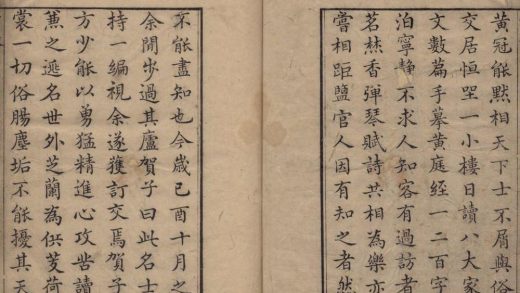 黄冠能黙相天下士不屑與俗
交居恒坐一小樓日讀八大家
文數篇手摹黄庭経一二百字
泊寧静不求人知客有過訪者
茗焚香彈琴賦詩共相為樂亦
嘗相距鹽官人因有知之者然
不能盡知也今歲己酉十月之
余閒步過其廬賀子曰此名士
持一編視余遂獲訂交焉賀子
方少能以勇猛精進心攻苦讀
薫之遯名世外芝蘭為供芰荷
裳一切俗腸塵垢不能擾其天